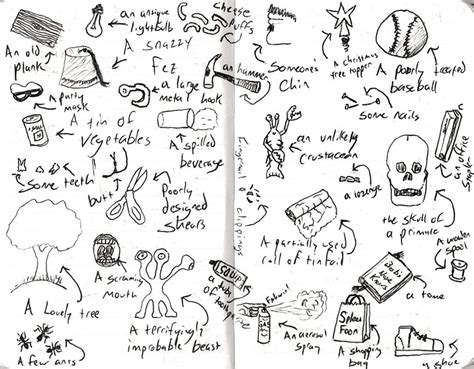 An old
plank
an antique
lightbulb
A snazzy
fez
Cheese
Puffs
a large
metal hook
an hammer
Someone's
Chin
A christmas
tree topper
A poorly treated
baseball
A party
mask
A tin of
vegetables
A spilled
beverage
Some teeth
butt
Poorly
designed
shears
an unlikely
crustacean
Some nails
a lozenge
an office
the skull of
a primate
A Lovely tree
A screaming
mouth
A terrifyingly
improbable beast
a tube
of
A partially used
roll of tinfoil
A wooden
spoon
a tome
An aerosol
spray
Spleu
Foon
A shopping
bag
A few ants
shoe